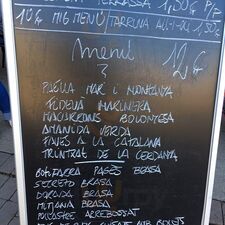 TERRASSA 1,50€ P/P
10€ MIG MENÚ/TARRINA ALI-I-OLI 1,50€
menú 12€
PAELLA MAR I MUNTANYA
FIDEUÀ MARINERA
MACARRONS BOLONYESA
AMANIDA VERDA
FAVES A LA CATALANA
TRINTXAT DE LA CERDANYA
BOTIFARRA PAGÈS BRASA
SECRETO BRASA
DORADA BRASA
MITJANA BRASA
POLLASTRE ARREBOSSAT
AMB BOLETS